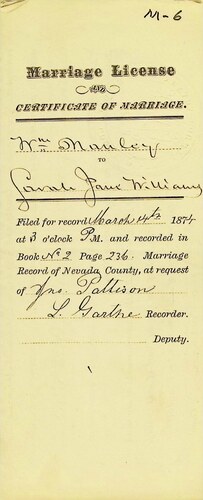 M-6
Marriage License
AND
CERTIFICATE OF MARRIAGE.
Wm Manley
TO
Sarah Jane Williams
Filed for record March 14th 1874
at 3 o'clock P M. and recorded in
Book No 2 Page 236. Marriage
Record of Nevada County, at request
of Jno. Pattison
L. Garthe Recorder.
Deputy.